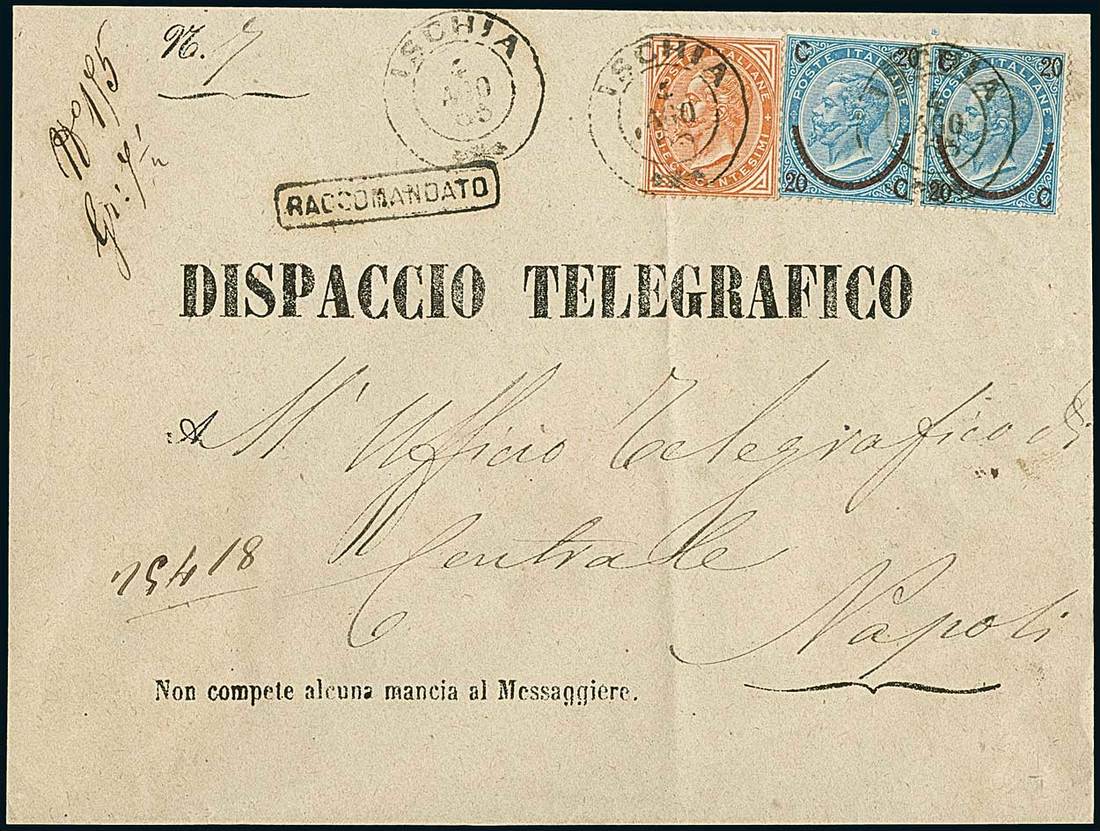 N. 7
ISCHIA
AGO
ISCHIA
AGO
POSTE ITALIANE
DIECI CENTESIMI
C 20
POSTE ITALIANE
20 C
ISCHIA
AGO
C 20
POSTE ITALIANE
20 C
RACCOMANDATO
DISPACCIO TELEGRAFICO
All' Ufficio Telegrafico di
Centrale
Napoli
Non compete alcuna mancia al Messaggiere.